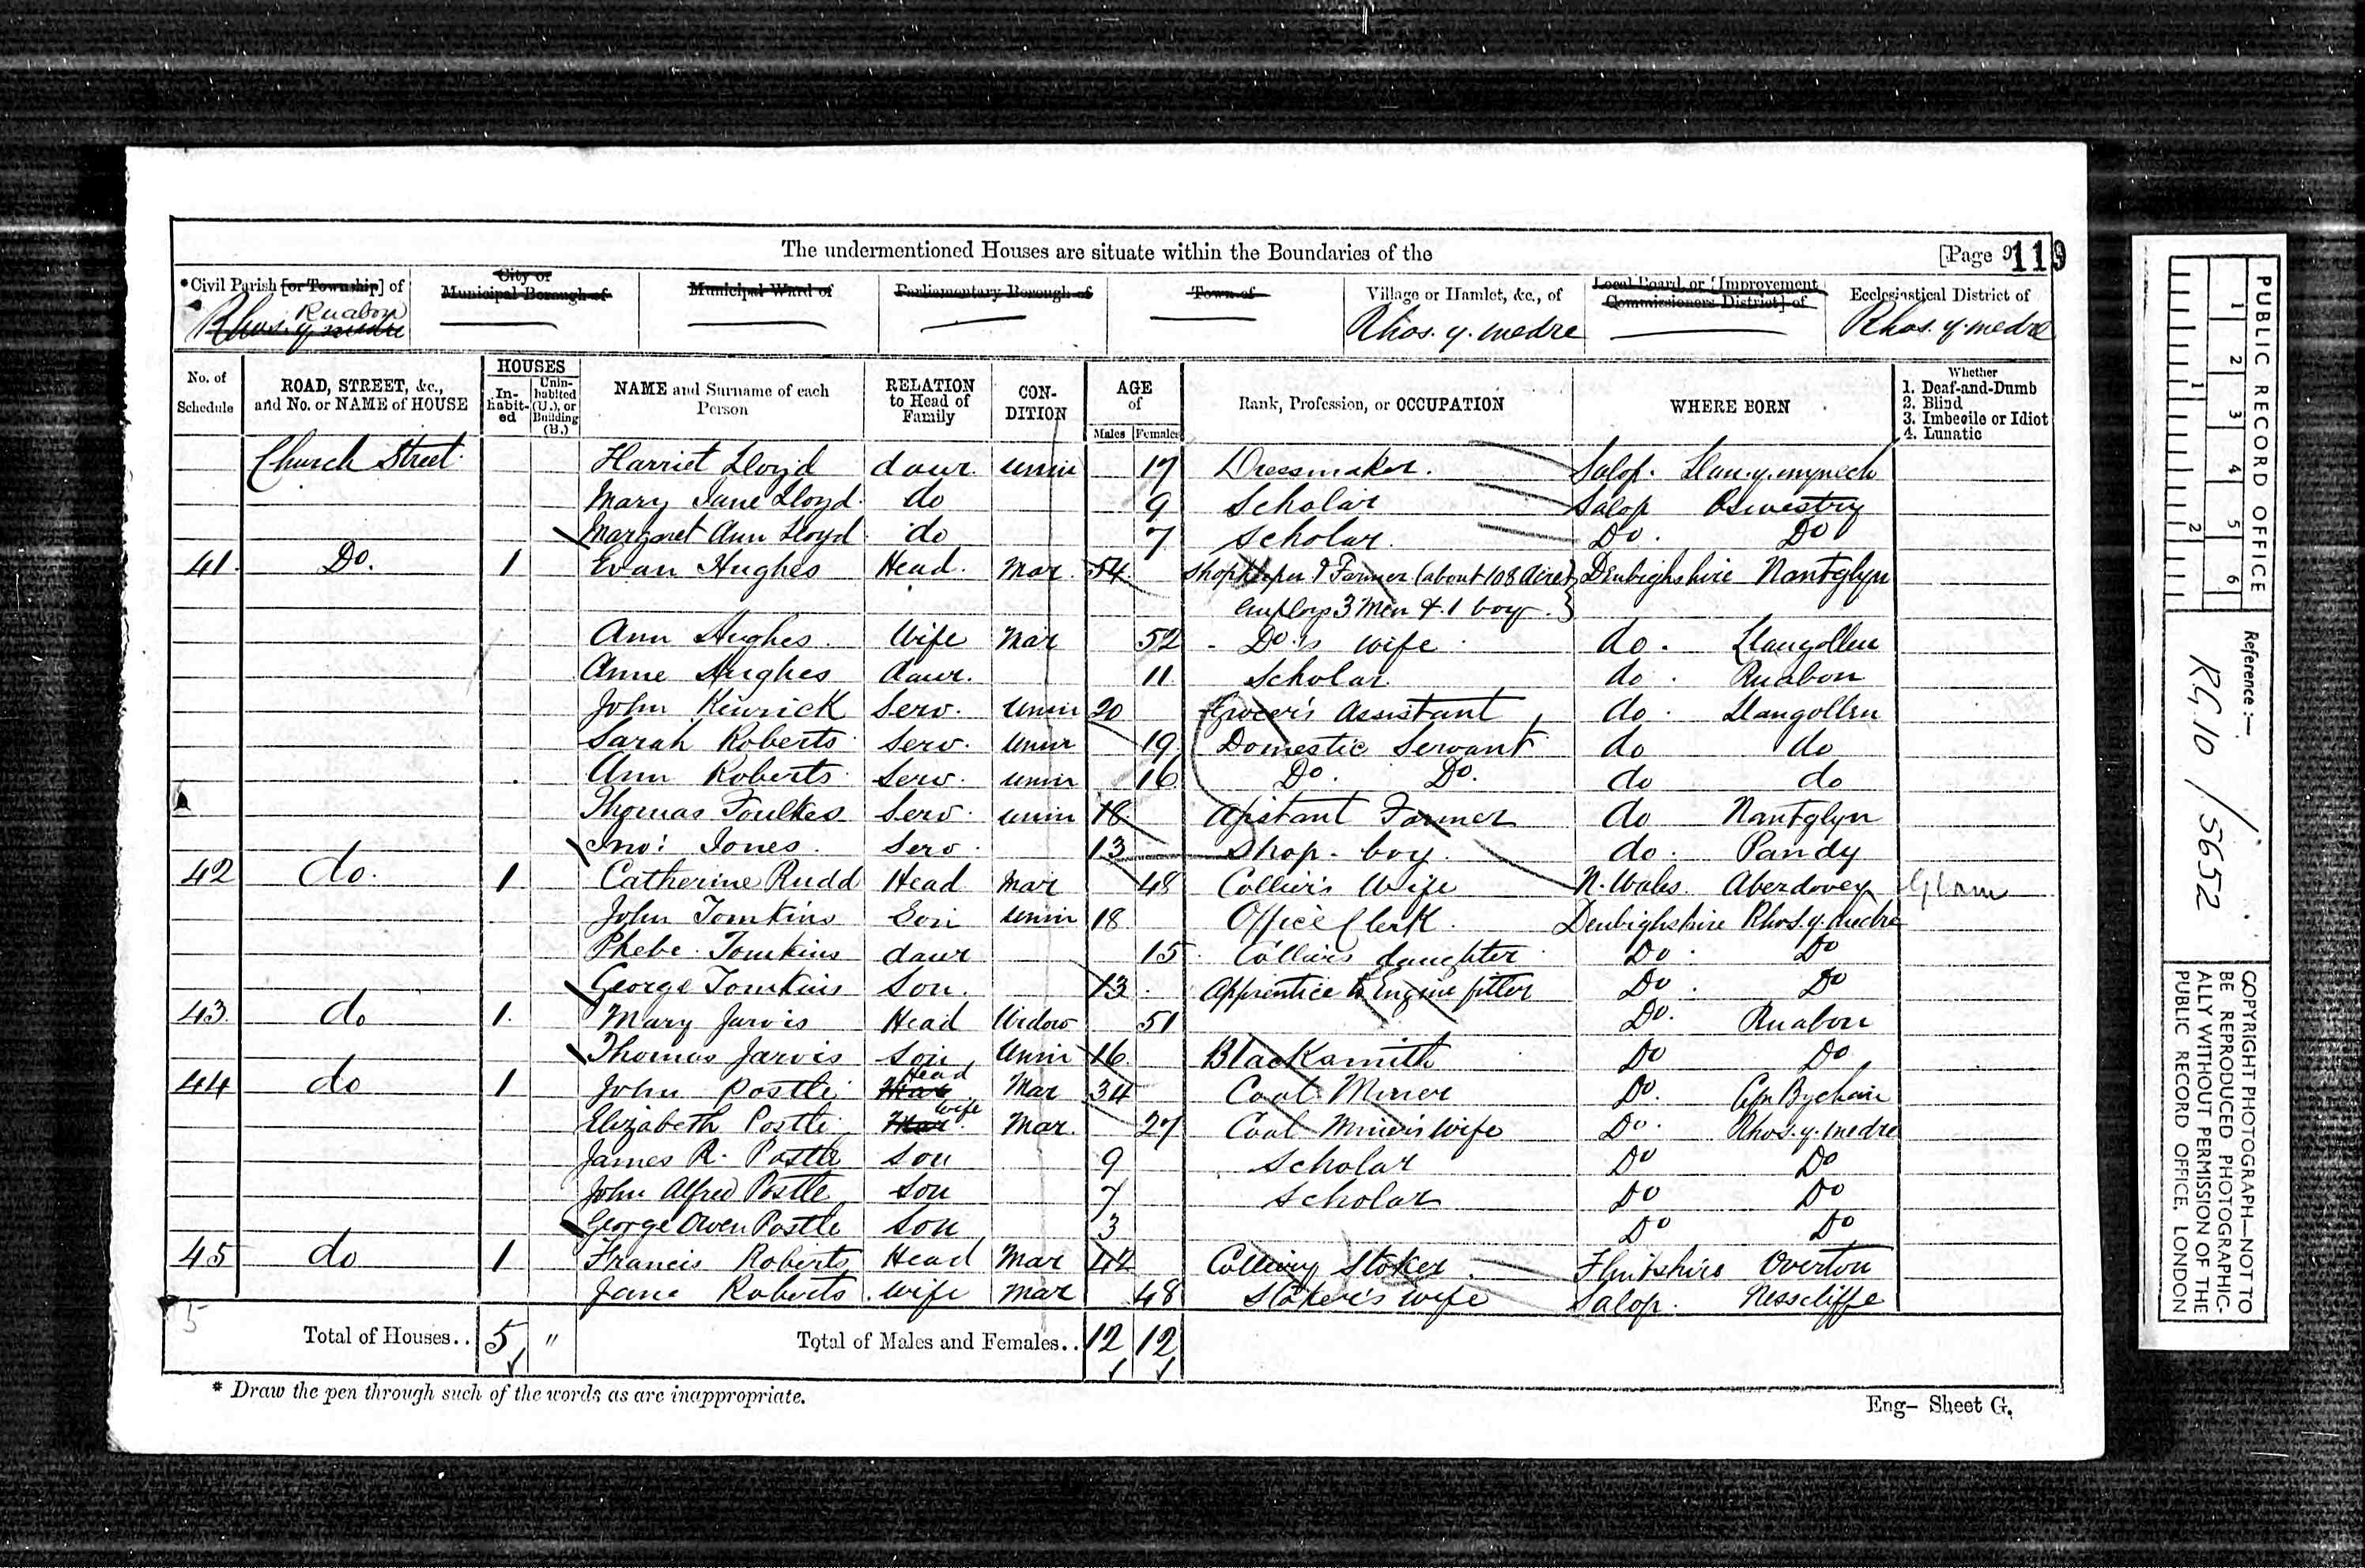 The undermentioned Houses are situate within the Boundaries of the [Page 9 119
*Civil Parish [or Township] of Ruabon Rhos. y. medre
City or Municipal Borough of
Municipal Ward of
Parliamentary Borough of
Town of
Village or Hamlet, &c., of Rhos. y. medre
Local Board, or [Improvement Commissioners District] of
Ecclesiastical District of Rhos. y. medre
No. of Schedule
ROAD, STREET, &c., and No. or NAME of HOUSE
HOUSES In-habit-ed Unin-habited (U.), or Building (B.)
NAME and Surname of each Person
RELATION to Head of Family
CON-DITION
AGE of Males Females
Rank, Profession, or OCCUPATION
WHERE BORN
Whether 1. Deaf-and-Dumb 2. Blind 3. Imbecile or Idiot 4. Lunatic
Church Street Harriet Lloyd daur. unm 17 Dressmaker. Salop. Llan.y.mynech
Mary Jane Lloyd do 9 Scholar Salop Oswestry
Margaret Ann Lloyd do 7 Scholar. Do. Do
41. Do. 1 Evan Hughes Head. Mar. 54 Shopkeeper & Farmer (about 108 Acres) Denbighshire Nantglyn
employs 3 Men & 1 boy.
Ann Hughes. Wife Mar 52 Do.'s wife do. Llangollen
Anne Hughes daur. 11 Scholar do. Ruabon
John Kenrick Serv. unm 20 Grocer's Assistant do. Llangollen
Sarah Roberts Serv. unm 19 Domestic Servant do do
Ann Roberts Serv. unm 16 Do. Do. do do
Thomas Foulkes Serv. unm 18 Assistant Farmer do Nantglyn
Jno: Jones. Serv. 13 Shop-boy. do. Pandy
42 do. 1 Catherine Rudd Head Mar 48 Collier's Wife N. Wales. Aberdovey Glam
John Tomkins Son unm 18 Office Clerk. Denbighshire Rhos.y.medre
Phebe Tomkins daur 15 Collier's daughter Do. Do
George Tomkins Son. 13 Apprentice to Engine fitter Do. Do
43. do 1. Mary Jarvis Head Widow 51 Do. Ruabon
Thomas Jarvis Son Unm 16 Blacksmith Do Do
44 do 1 John Postle Head Mar 34 Coal Miner Do. Cefn Bychan
Elizabeth Postle wife Mar. 27 Coal Miner's wife Do. Rhos.y.medre
James R. Postle Son 9 Scholar Do Do
John Alfred Postle Son 7 Scholar Do Do
George Owen Postle Son 3 Do Do
45 do 1 Francis Roberts Head Mar 44 Colliery Stoker. Flintshire Overton
Jane Roberts. wife Mar 48 Stoker's wife Salop. Nesscliffe
5
Total of Houses.. 5 " Total of Males and Females.. 12 12
* Draw the pen through such of the words as are inappropriate.
Eng- Sheet G.
PUBLIC RECORD OFFICE
1 2 3 4 5 6
1 2
Reference :-
RG 10 / 5652
COPYRIGHT PHOTOGRAPH—NOT TO
BE REPRODUCED PHOTOGRAPHIC-
ALLY WITHOUT PERMISSION OF THE
PUBLIC RECORD OFFICE, LONDON